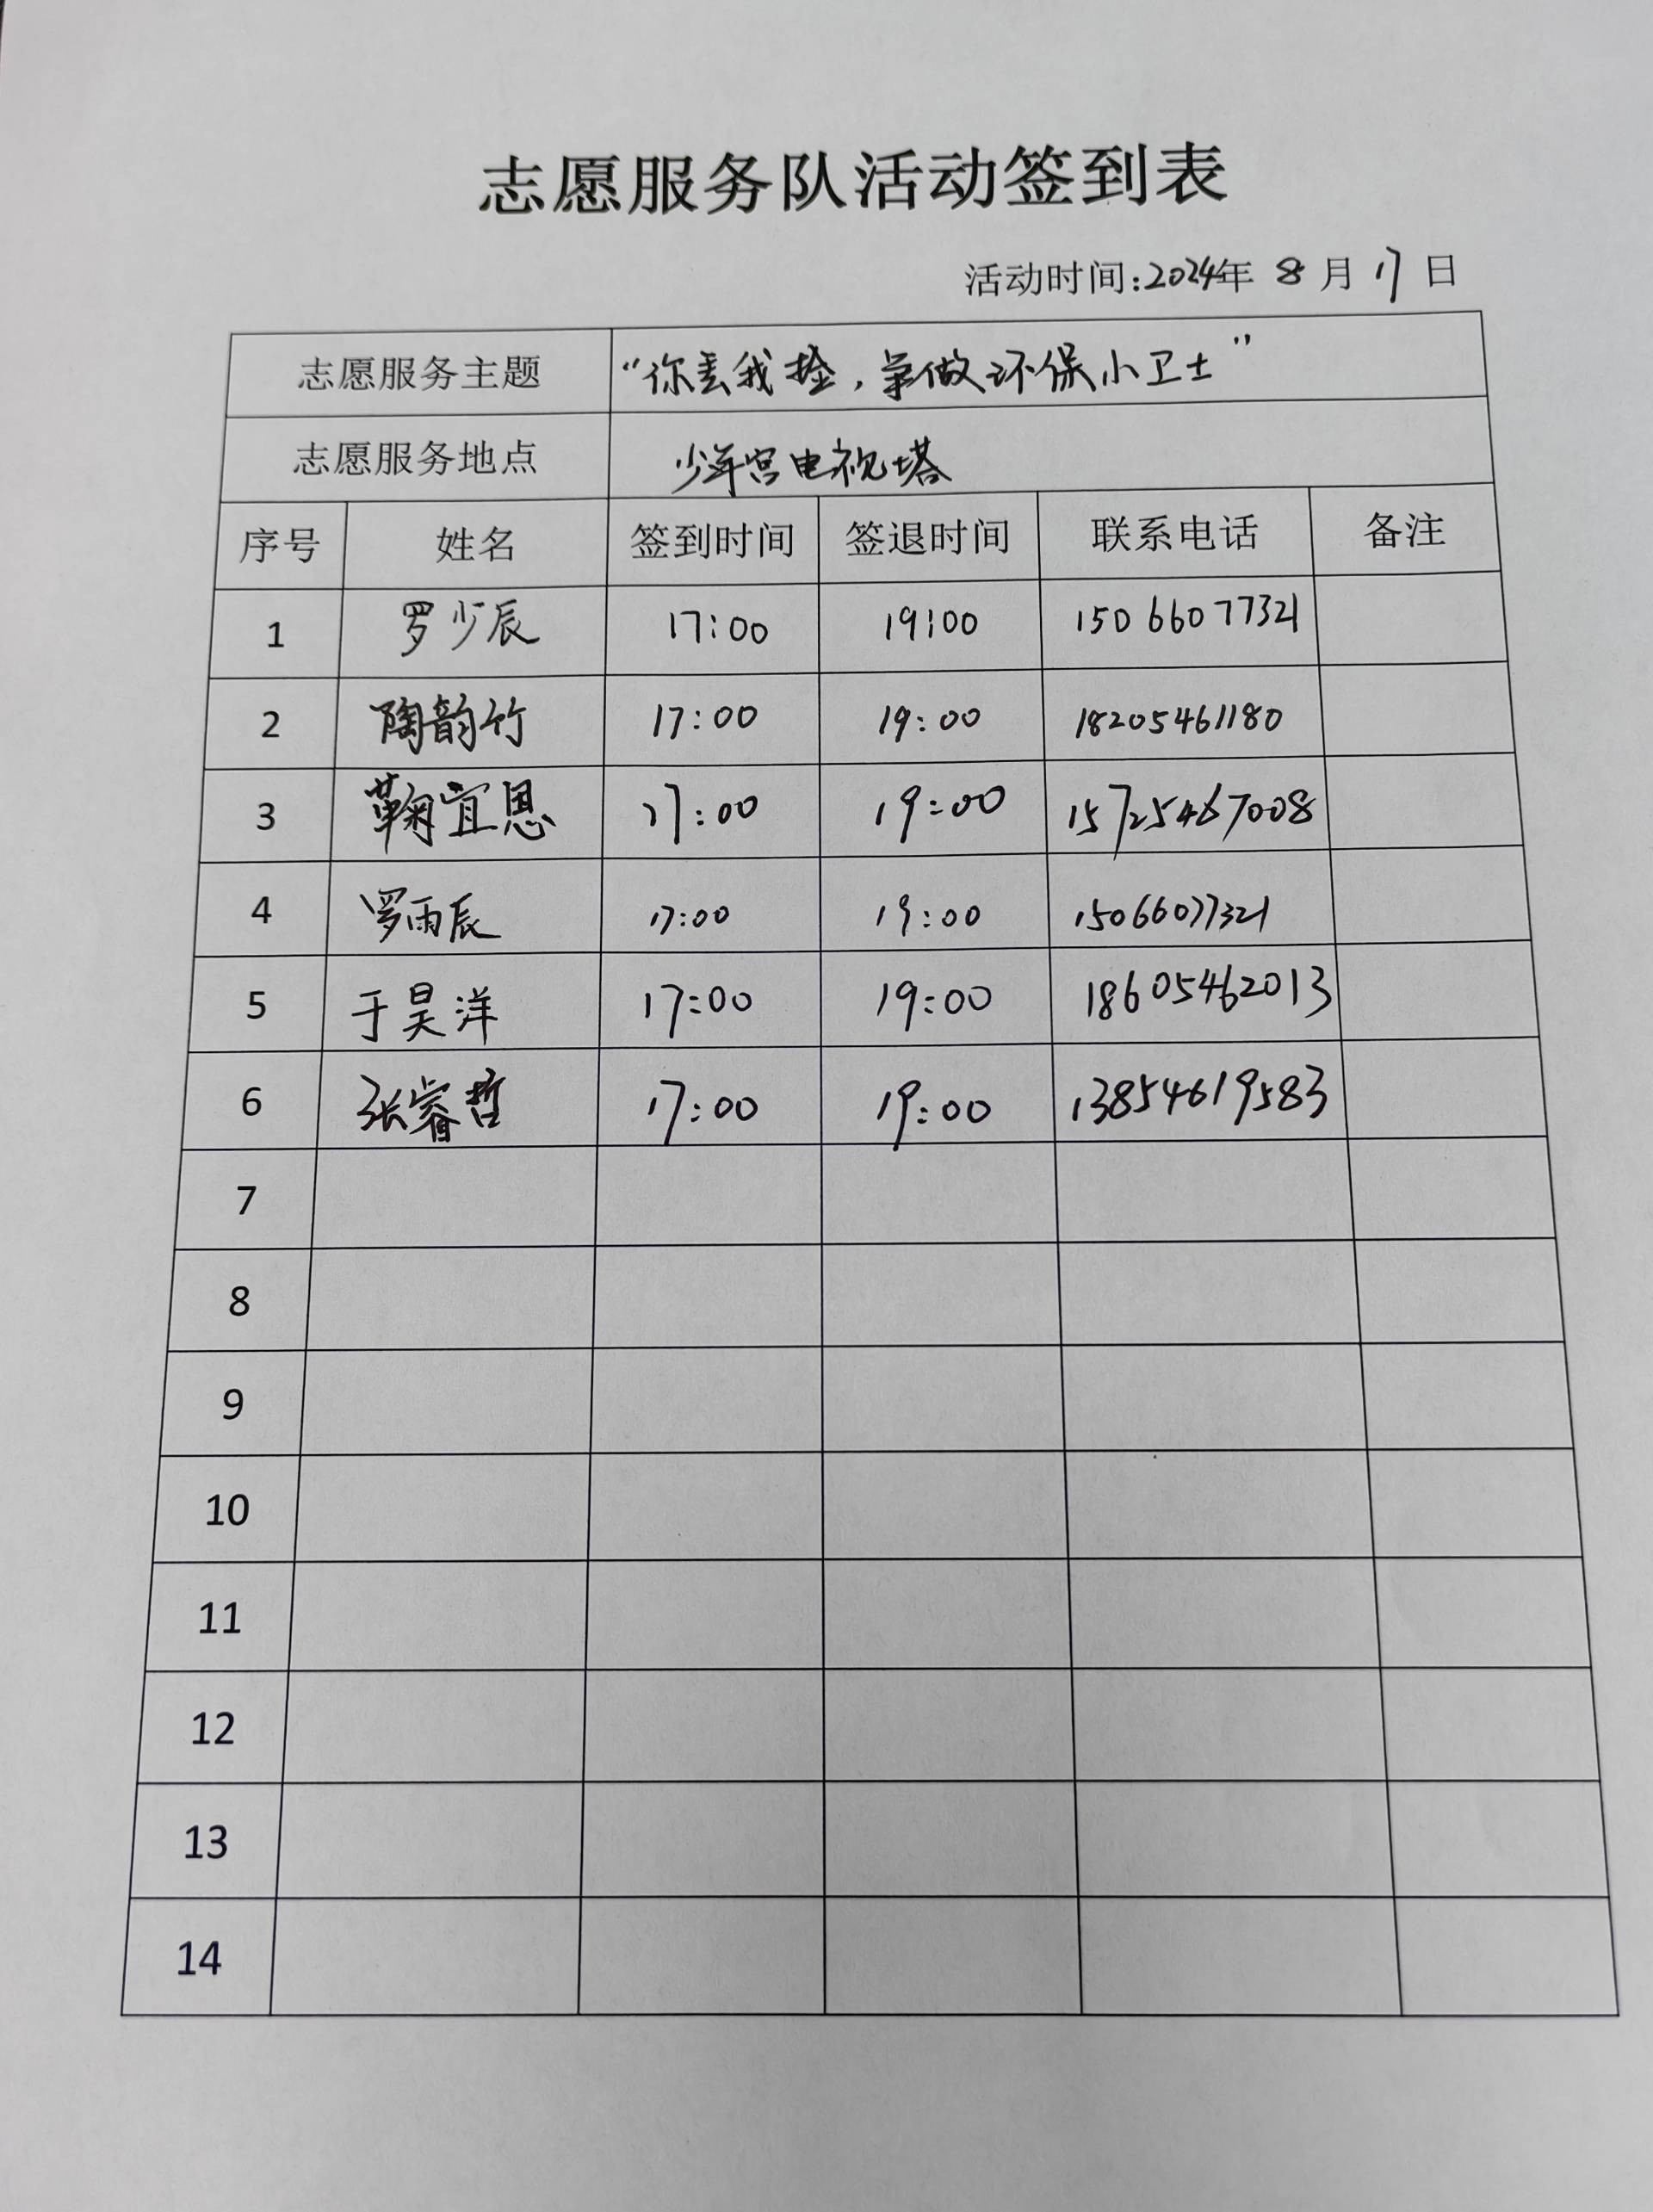 志愿服务队活动签到表
活动时间:2024年 8 月 17 日
志愿服务主题 “你丢我捡，争做环保小卫士”
志愿服务地点 少年宫电视塔
序号 姓名 签到时间 签退时间 联系电话 备注
1 罗少辰 17:00 19:00 15066077321
2 陶韵竹 17:00 19:00 18205461180
3 鞠宜恩 17:00 19:00 15725467008
4 罗雨辰 17:00 19:00 15066077321
5 于昊洋 17:00 19:00 18605462013
6 张睿哲 17:00 19:00 13854619583
7
8
9
10
11
12
13
14